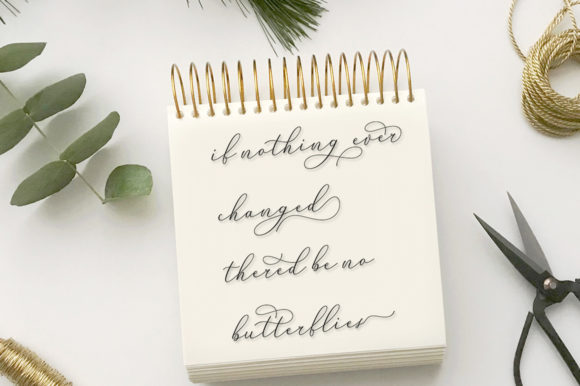 if nothing ever
changed
thered be no
butterflies